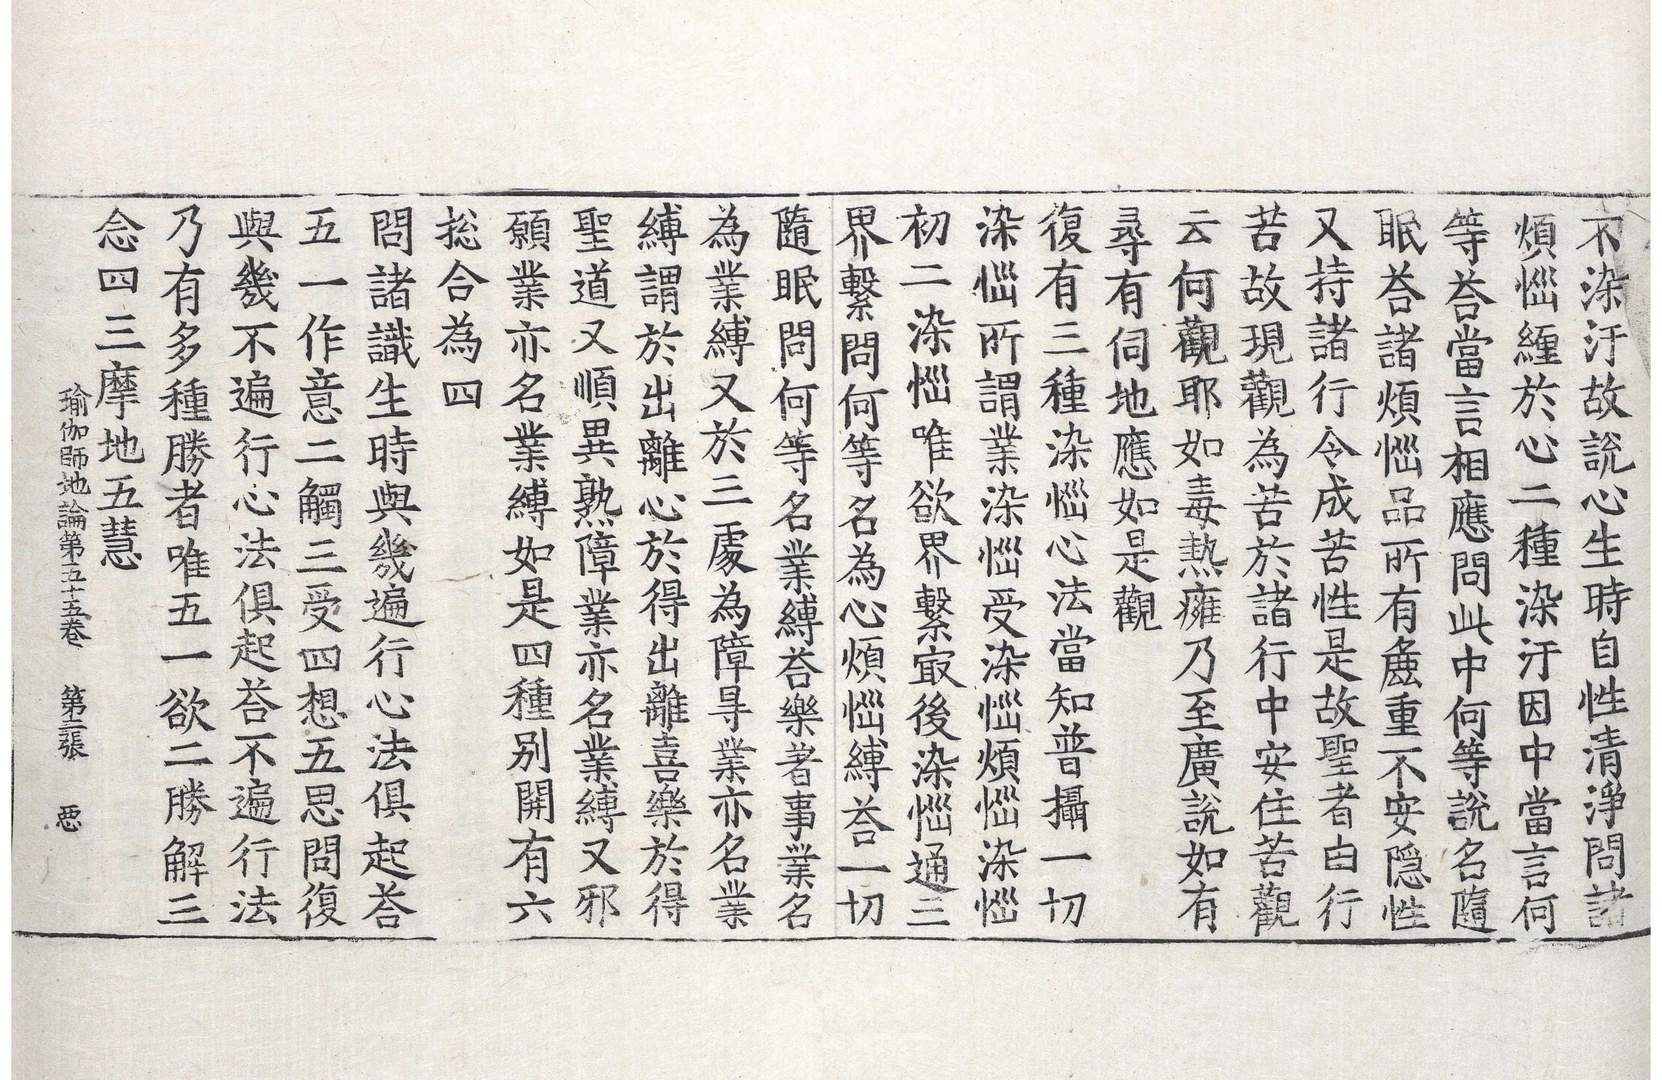 不染汙故說心生時自性清淨問諸
煩惱纏於心二種染汙因中當言何
等荅當言相應問此中何等說名隨
眠荅諸煩惱品所有麁重不安隱性
又持諸行令成苦性是故聖者由行
苦故現觀為苦於諸行中安住苦觀
云何觀耶如毒熱癰乃至廣說如有
尋有伺地應如是觀
復有三種染惱心法當知普攝一切
染惱所謂業染惱受染惱煩惱染惱
初二染惱唯欲界繫㝡後染惱通三
界繫問何等名為心煩惱縛荅一切
隨眠問何等名業縛荅樂著事業名
為業縛又於三處為障㝵業亦名業
縛謂於出離心於得出離喜樂於得
聖道又順異熟障業亦名業縛又邪
願業亦名業縛如是四種別開有六
捴合為四
問諸識生時與幾遍行心法俱起荅
五一作意二觸三受四想五思問復
與幾不遍行心法俱起荅不遍行法
乃有多種勝者唯五一欲二勝解三
念四三摩地五慧
瑜伽師地論第五十五卷 第十二張 惡